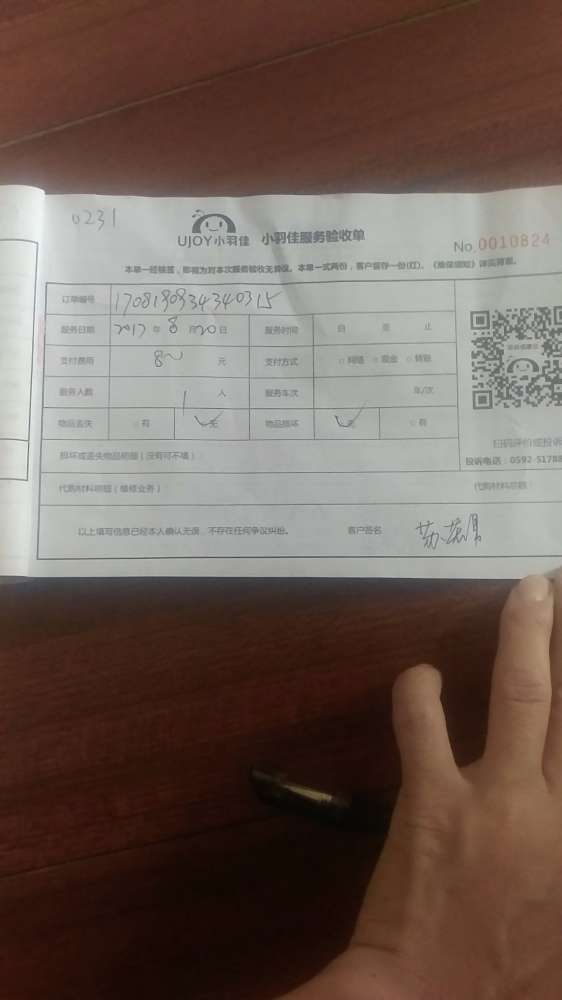 0231
UJOY小羽佳 小羽佳服务验收单
No.0010824
本单一经签签，即视为对本次服务验收无异议。本单一式两份，客户留存一份(红)。《维保须知》详见背面。
订单编号 1708190934340315
服务日期 2017年8月20日 服务时间 自 至 止
支付费用 80 元 支付方式 □网络 □现金 □转账
服务人数 1 人 服务车次 车/次
物品丢失 □有 ✓无 物品损坏 ✓无 □有
损坏或丢失物品明细（没有可不填）
代购材料明细（维修业务） 代购材料总额：
以上填写信息已经本人确认无误，不存在任何争议纠纷。 客户签名
扫码评价或投诉
投诉电话：0592-51788